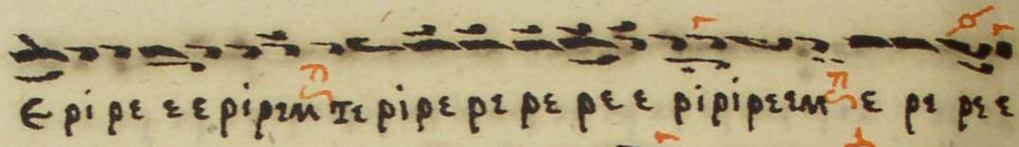 Ε ρι ρε ε ε ρι ρεμ Τε ρι ρε ρε ρε ρε ε ρι ρι ρε εμ ε ρε ρε ε